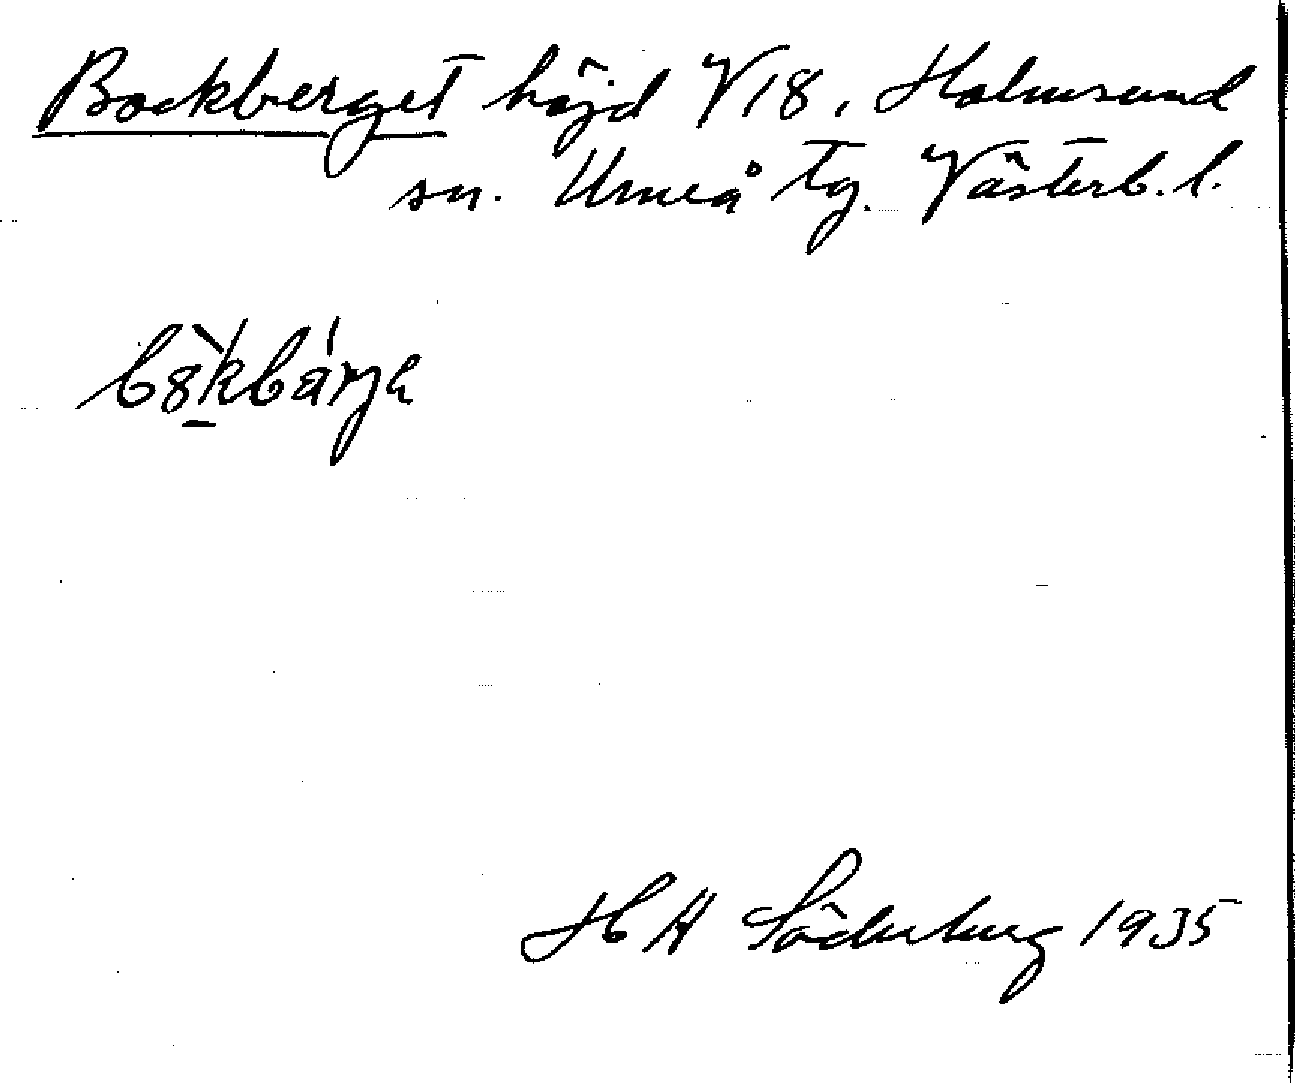 Bockberget höjd V18, Holmsund
sn. Umeå tg. Västerb. l.
H A Söderberg 1935